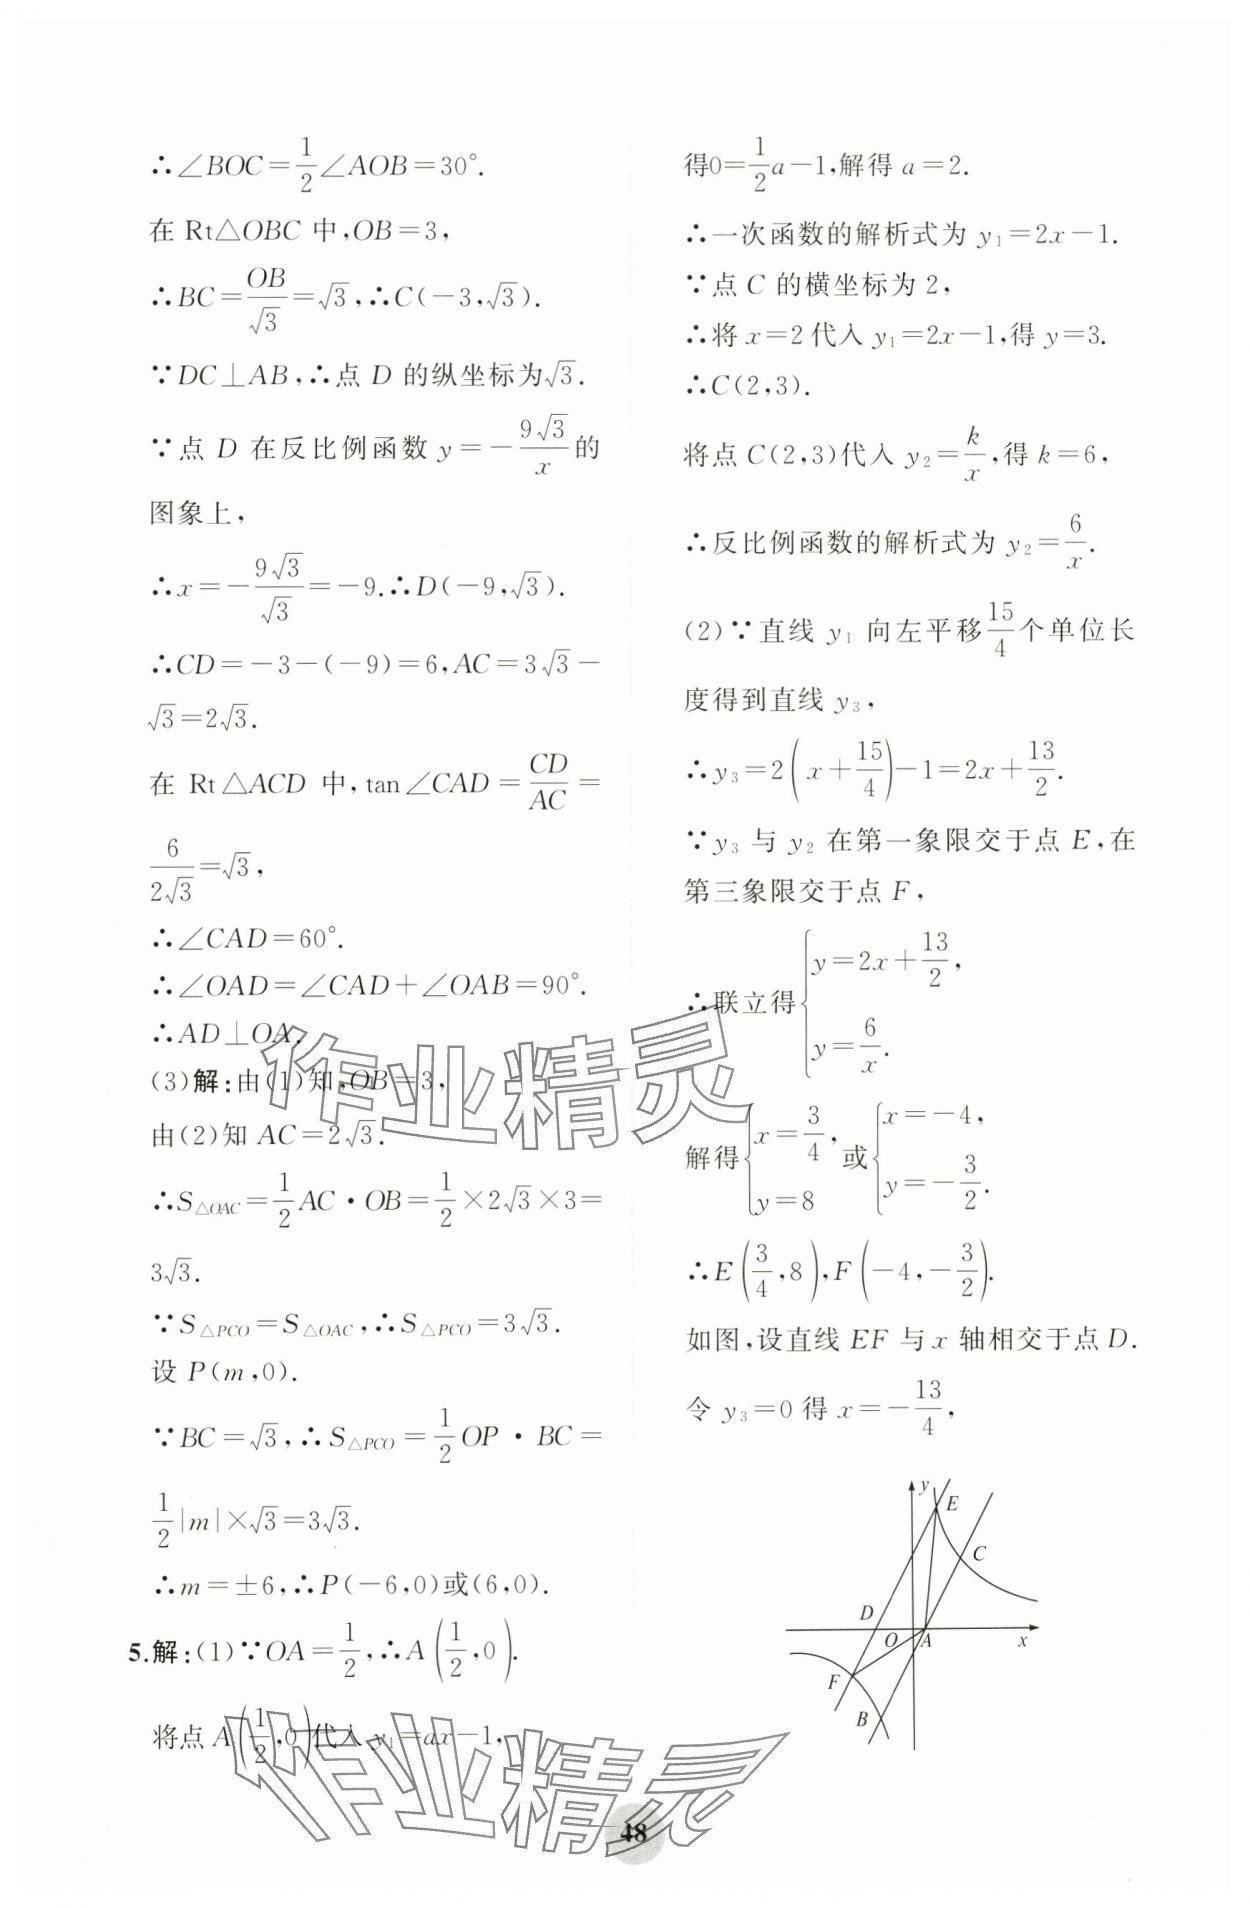 ∴∠BOC=1/2∠AOB=30°.
在 Rt△OBC 中,OB=3,
∴BC=OB/√3=√3,∴C(-3,√3).
∵DC⊥AB,∴点 D 的纵坐标为√3.
∵点 D 在反比例函数 y=-9√3/x的
图象上,
∴x=-9√3/√3=-9.∴D(-9,√3).
∴CD=-3-(-9)=6,AC=3√3-
√3=2√3.
在 Rt△ACD 中,tan∠CAD=CD/AC=
6/2√3=√3,
∴∠CAD=60°.
∴∠OAD=∠CAD+∠OAB=90°.
∴AD⊥OA.
(3)解:由(1)知,OB=3,
由(2)知 AC=2√3.
∴S△OAC=1/2AC·OB=1/2×2√3×3=
3√3.
∵S△PCO=S△OAC,∴S△PCO=3√3.
设 P(m,0).
∵BC=√3,∴S△PCO=1/2OP·BC=
1/2|m|×√3=3√3.
∴m=±6,∴P(-6,0)或(6,0).
5.解:(1)∵OA=1/2,∴A(1/2,0).
将点A(1/2,0)代入 y₁=ax-1,
得0=1/2a-1,解得 a=2.
∴一次函数的解析式为 y₁=2x-1.
∵点 C 的横坐标为 2,
∴将 x=2 代入 y₁=2x-1,得 y=3.
∴C(2,3).
将点 C(2,3)代入 y₂=k/x,得 k=6,
∴反比例函数的解析式为 y₂=6/x.
(2)∵直线 y₁ 向左平移15/4个单位长
度得到直线 y₃,
∴y₃=2(x+15/4)-1=2x+13/2.
∵y₃ 与 y₂ 在第一象限交于点 E,在
第三象限交于点 F,
∴联立得{y=2x+13/2,
y=6/x.
解得{x=3/4, 或{x=-4,
y=8 y=-3/2.
∴E(3/4,8),F(-4,-3/2).
如图,设直线 EF 与 x 轴相交于点 D.
令 y₃=0 得 x=-13/4,
y
E
C
D
O
A
x
F
B
作业精灵
作业精灵
48